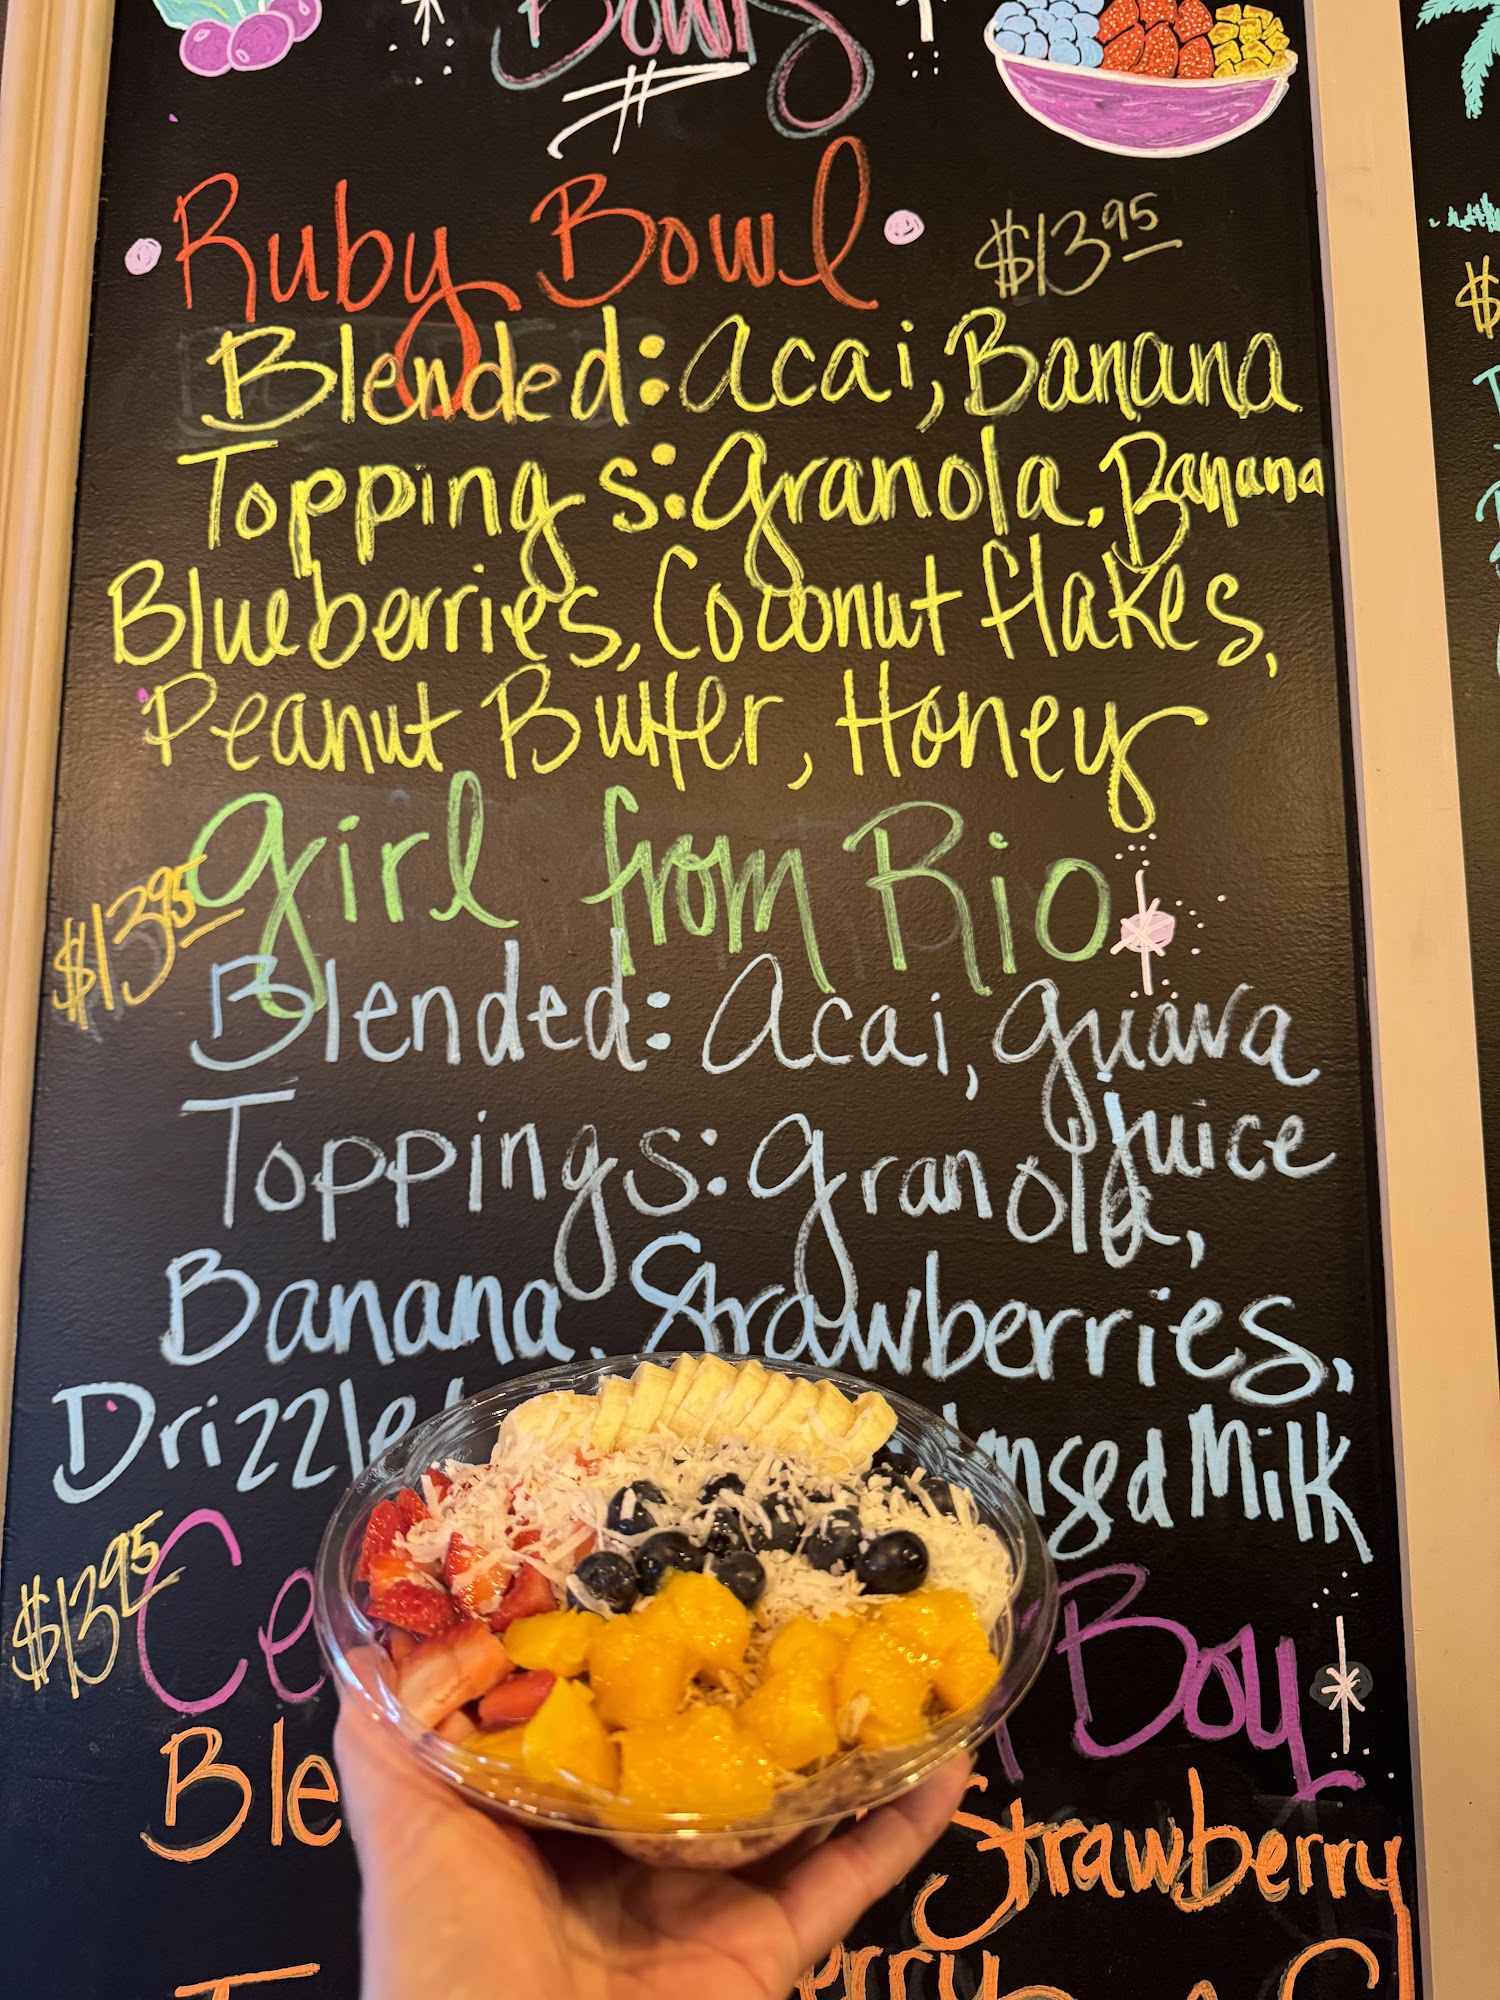 Bowls
Ruby Bowl $13.95
Blended: Acai, Banana
Toppings: Granola. Banana
Blueberries, Coconut flakes,
Peanut Butter, Honey
Girl from Rio
$13.95
Blended: Acai, Guava
juice
Toppings: Granola,
Banana, Strawberries,
Drizzle Milk
$13.95
Boy
Strawberry